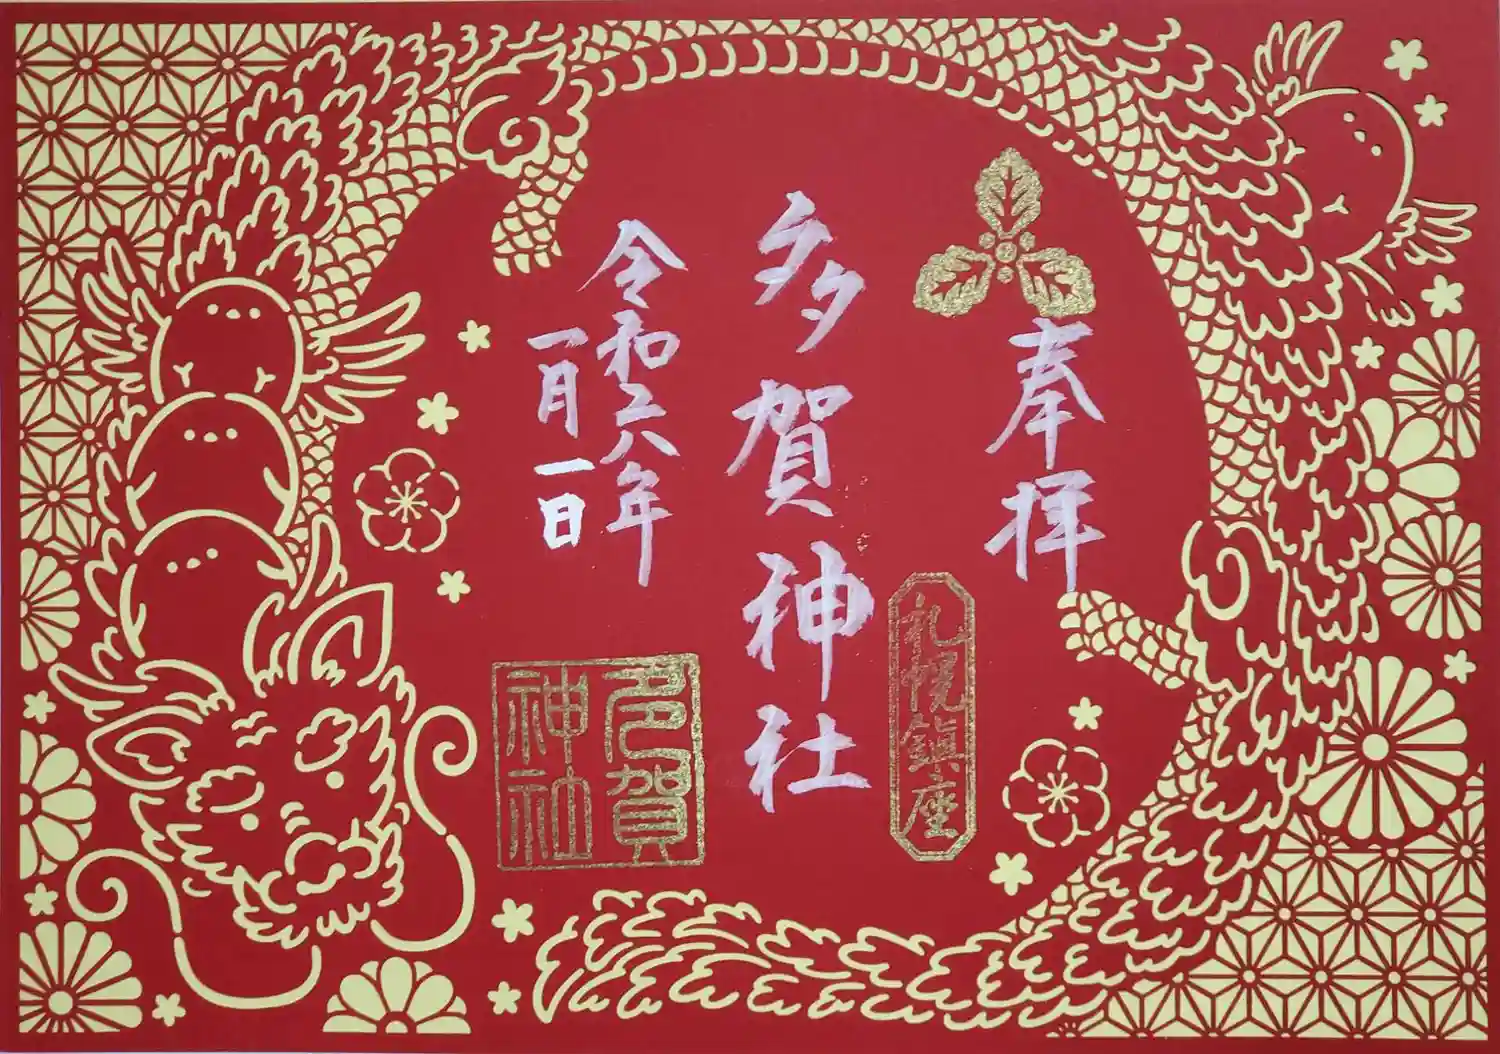 奉拝
札幌鎮座
多賀神社
令和六年
一月一日
多賀
神社